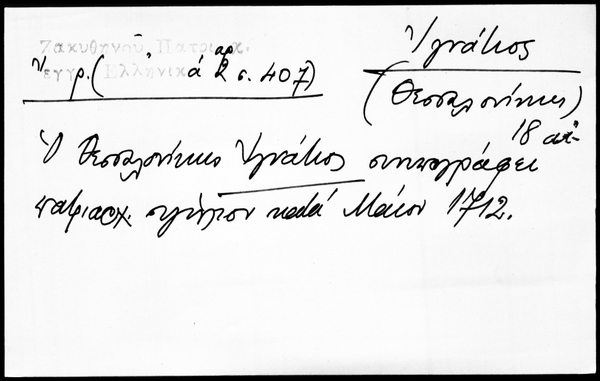 Ζακυθηνοῦ, Πατριαρχ.
ἔγγρ. (Ἑλληνικά 2 σ. 407)
Ἰγνάτιος
(Θεσσαλονίκης)
18 αἰ.
Ὁ Θεσσαλονίκης Ἰγνάτιος συνυπογράφει
πατριαρχ. σιγίλλιον κατά Μάϊον 1712.